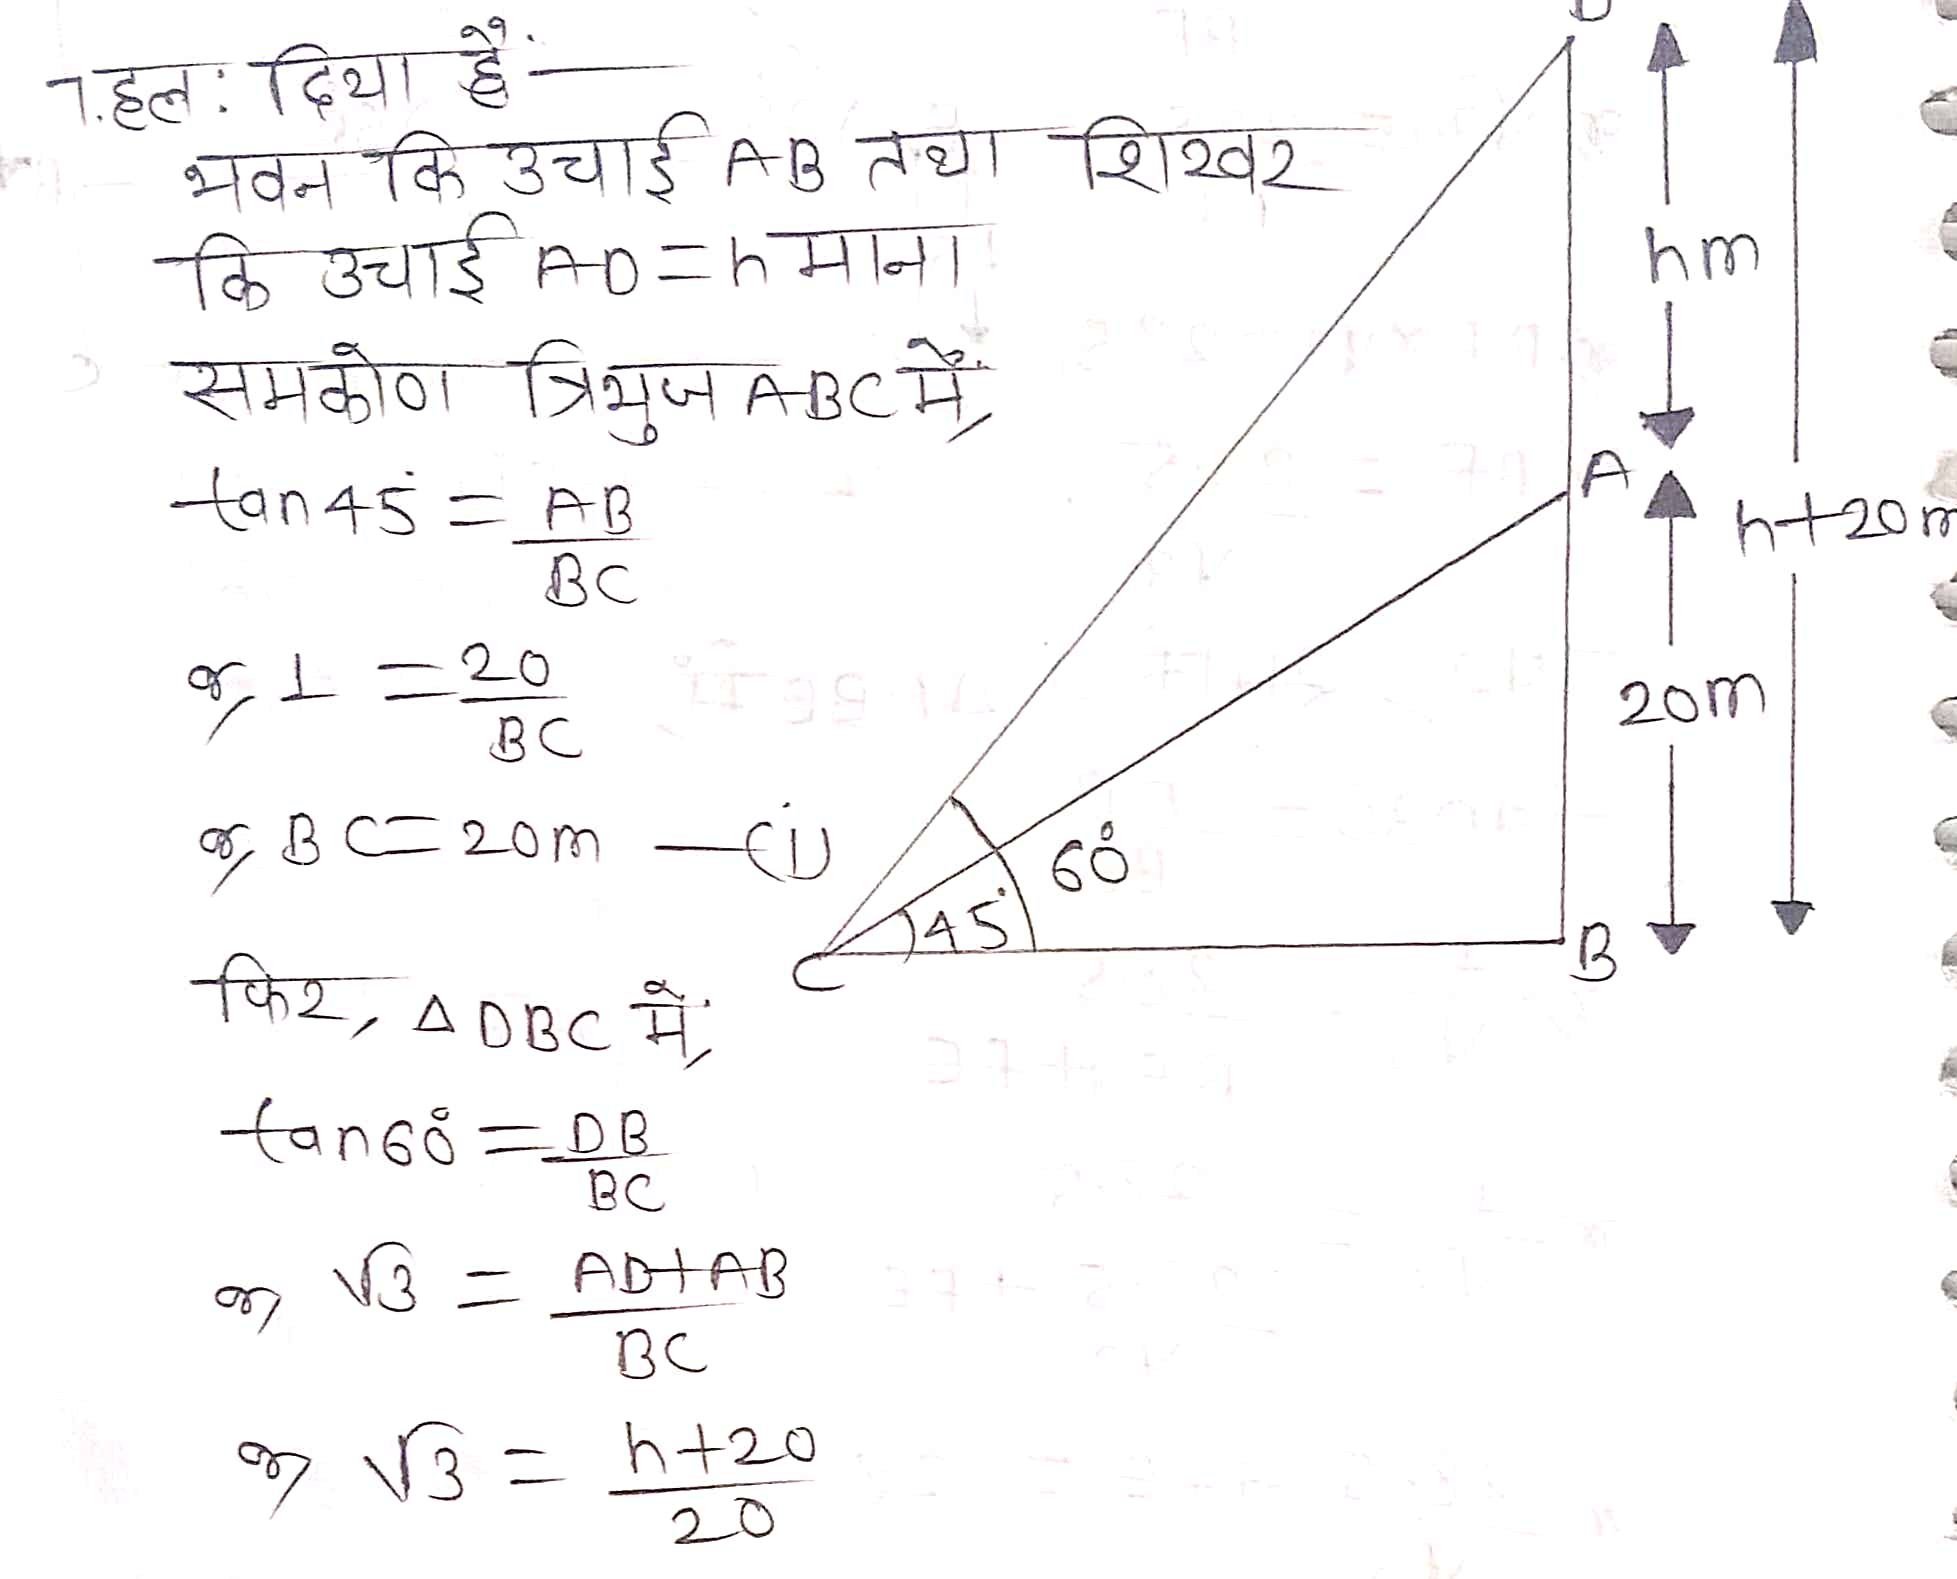 7.हल: दिया है:—
भवन कि उचाई AB तथा शिखर
कि उचाई AD=h माना
समकोण त्रिभुज ABC में,
tan45° = AB/BC
or, 1 = 20/BC
or, BC = 20m —(i)
फिर, △DBC में,
tan60° = DB/BC
or √3 = AD+AB/BC
or √3 = h+20/20
D
hm
A
h+20m
20m
60°
45°
C
B